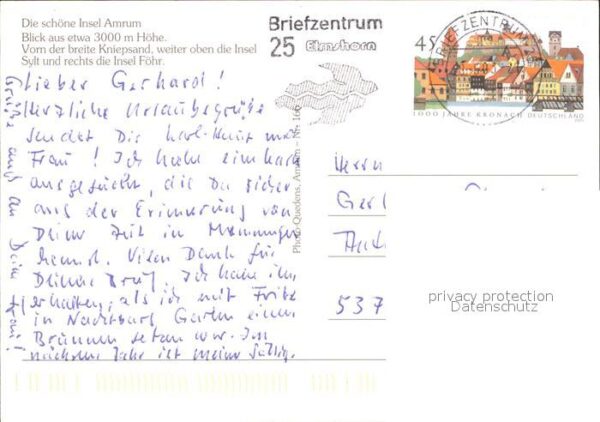 Die schöne Insel Amrum
Blick aus etwa 3000 m Höhe.
Vorn der breite Kniepsand, weiter oben die Insel
Sylt und rechts die Insel Föhr.
Briefzentrum
25 Elmshorn
BRIEFZENTRUM
45
1000 JAHRE KRONACH DEUTSCHLAND
Lieber Gerhard!
Herzliche Urlaubsgrüße
sendet Dir Karl-Knut mit
Frau! Ich habe eine Karte
ausgesucht, die Du sicher
aus der Erinnerung von
Deiner Zeit in
kennst. Vielen Dank für
Deinen Brief. Ich habe ihn
erhalten, als ich mit Fritz
in Nachbars Garten einen
Brunnen setzen war. Im
nächsten Jahr ist meiner fällig.
Grüße auch an Deine Frau!
Photo-Quedens, Amrum – Nr. 166
Herrn
537
privacy protection
Datenschutz